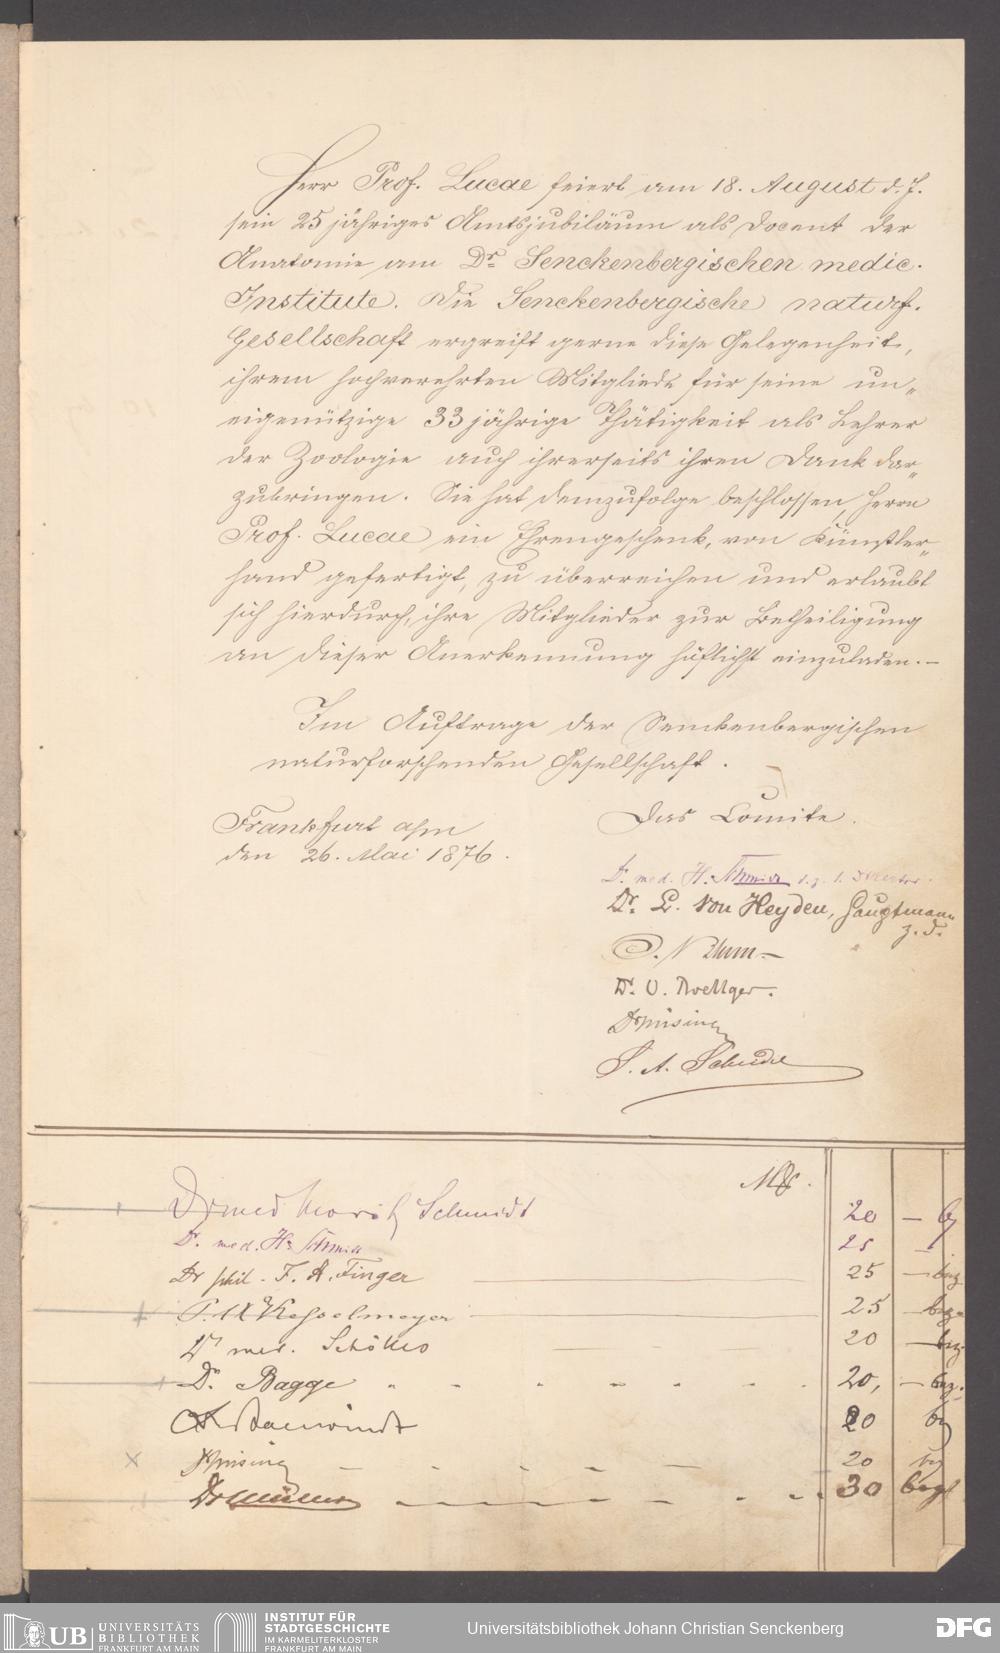 Herr Prof. Lucae feiert am 18. August d. J.
sein 25 jähriges Amtsjubiläum als Docent der
Anatomie am Dr. Senckenbergischen medic.
Institute. Die Senckenbergische naturf.
Gesellschaft ergreift gerne diese Gelegenheit,
ihrem hochverehrten Mitgliede für seine un„
eigennützige 33 jährige Thätigkeit als Lehrer
der Zoologie auch ihrerseits ihren Dank dar„
zubringen. Sie hat demzufolge beschlossen, Herrn
Prof. Lucae ein Ehrengeschenk, von Künstler„
hand gefertigt, zu überreichen und erlaubt
sich hierdurch, ihre Mitglieder zur Betheiligung
an dieser Anerkennung höflichst einzuladen. –
Im Auftrage der Senckenbergischen
naturforschenden Gesellschaft.
Frankfurt a/m
den 26. Mai 1876.
Das Comite.
Dr. med. H. Schmidt d. z. I. Director.
Dr. L. von Heyden, Hauptmann
z. D.
Dr. O. Boettger.
Dr. med Moritz Schmidt 20 –
Dr. med. H. Schmidt 25 –
Dr phil. F. A. Finger 25 – bez
P. A. Kesselmeyer 25 – bez
Dr med. Schölles 20 – bez
Dr. Bagge 20, – bez.
20
20
30 bezl
UB UNIVERSITÄTS
BIBLIOTHEK
FRANKFURT AM MAIN
INSTITUT FÜR
STADTGESCHICHTE
IM KARMELITERKLOSTER
FRANKFURT AM MAIN
Universitätsbibliothek Johann Christian Senckenberg
DFG